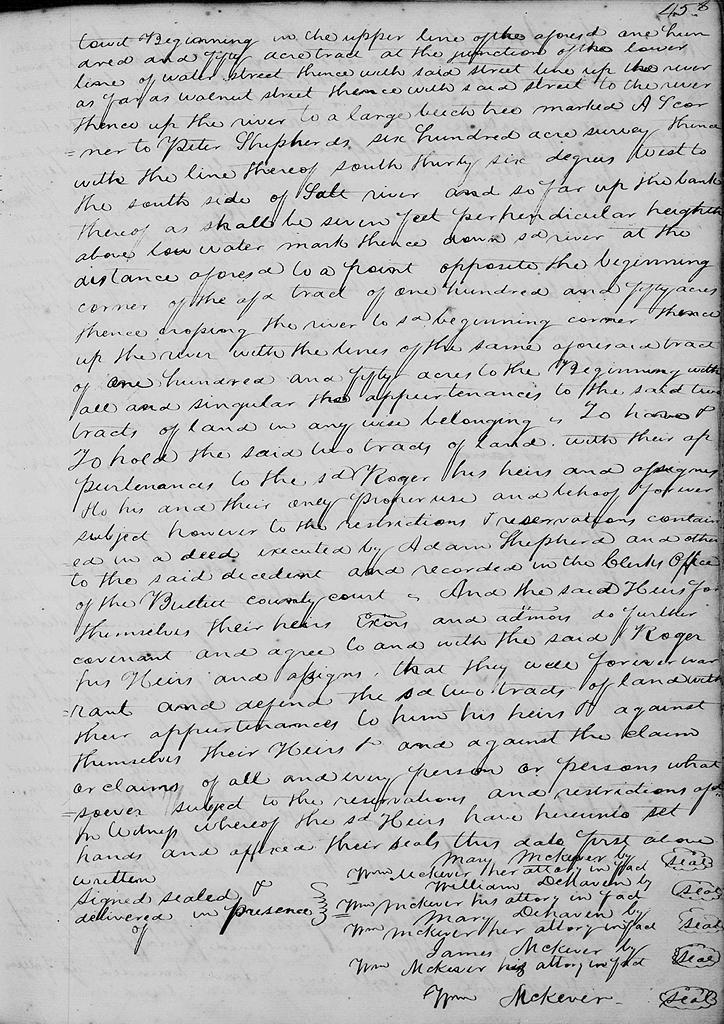 458
towit Beginning in the upper line of the aforesd one hun
dred and fifty acre tract at the junction of the lower
line of water street thence with said street line up the river
as far as walnut street thence with said street to the river
thence up the river to a large beech tree marked A S cor
=ner to Peter Shepherds six hundred acre survey thence
with the line thereof south thirty six degrees West to
the south side of Salt river and so far up the bank
thereof as shall be seven feet perpendicular heighth
above low water mark thence down sd river at the
distance aforesd to a point opposite the beginning
corner of the afd tract of one hundred and fifty acres
thence crossing the river to sd beginning corner thence
up the river with the lines of the same aforesaid tract
of one hundred and fifty acres to the Beginning with
all and singular the appurtenances to the said two
tracts of land in any wise belonging To have &
To hold the said two tracts of land with their ap
purtenances to the sd Roger his heirs and assignes
to his and their only proper use and behoof forever
subject however to the restrictions & reservations contain
ed in a deed executed by Adam Shepherd and other
to the said decedent and recorded in the Clerks Office
of the Bullitt county court And the said Heirs for
themselves their heirs Exors and admors do further
covenant and agree to and with the said Roger
his Heirs and assigns, that they will forever war
=rant and defend the sd two tracts of land with
their appurtenances to him his heirs & against
themselves their Heirs & and against the claim
or claims of all and every person or persons what
=soever subject to the reservations and restrictions afd
In Witness whereof the sd Heirs have hereunto set
hands and affixed their seals this date first above
written
Mary McKever by
Wm McKever her attory in fact seal
Signed sealed &
William Dehaven by
delivered in presence
Wm McKever his attory in fact seal
of
Mary Dehaven by
Wm McKever her attory in fact seal
James McKever by
Wm McKever his attory in fact seal
Wm McKever seal